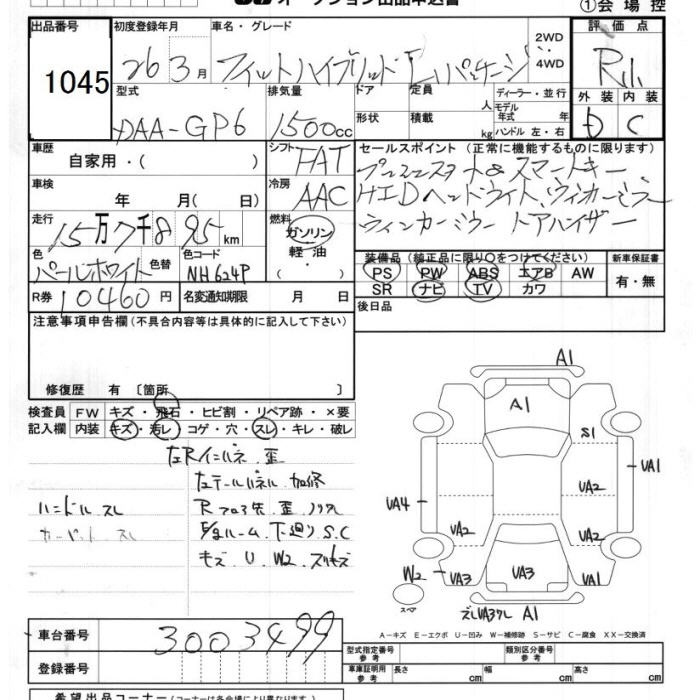 オークション出品申込書
①会場控
出品番号 初度登録年月 車名・グレード 2WD 4WD 評価点
1045 26 3月 フィットハイブリッド Lパッケージ R
型式 排気量 ドア 定員 人 ディーラー・並行 外装 内装
DAA-GP6 1500cc 形状 積載 kg モデル年式 年式 ハンドル 左・右 D C
車歴 自家用・( ) シフト FAT セールスポイント (正常に機能するものに限ります)
プッシュスタート& スマートキー
車検 年 月(日) 冷房 AAC HID ヘッドライト、ウィンカーミラー
走行 15万7千895km 燃料 ガソリン 軽油 ・( )
ウィンカーミラー
色 パールホワイト 色替 色コード NH624P
装備品 (純正品に限り○をつけてください) 新車保証書
PS PW ABS エアB AW 有・無
SR ナビ TV カワ
R券 10460円 名変通知期限 月 日 後日品
注意事項申告欄 (不具合内容等は具体的に記入して下さい)
修復歴 有 〔箇所 〕
検査員 FW キズ・飛石・ヒビ割・リペア跡・×要
記入欄 内装 キズ・汚レ・コゲ・穴・スレ・キレ・破レ
左Rインパネ 歪
左テールパネル 加修
ハンドル スレ
カーペット スレ
下廻り S.C
キズ U W2 スリキズ
A1
A1
S1
UA1
UA4
UA2
UA2
UA2
W2
UA3
UA3
UA1
スペア
A1
A-キズ E-エクボ U-凹み W-補修跡 S-サビ C-腐食 XX-交換済
車台番号 3003499
型式指定番号 参考 類別区分番号 参考
登録番号 車庫証明用 参考 長さ cm 幅 cm 高さ cm
希望出品コーナー (コーナーは各会場により異なります)